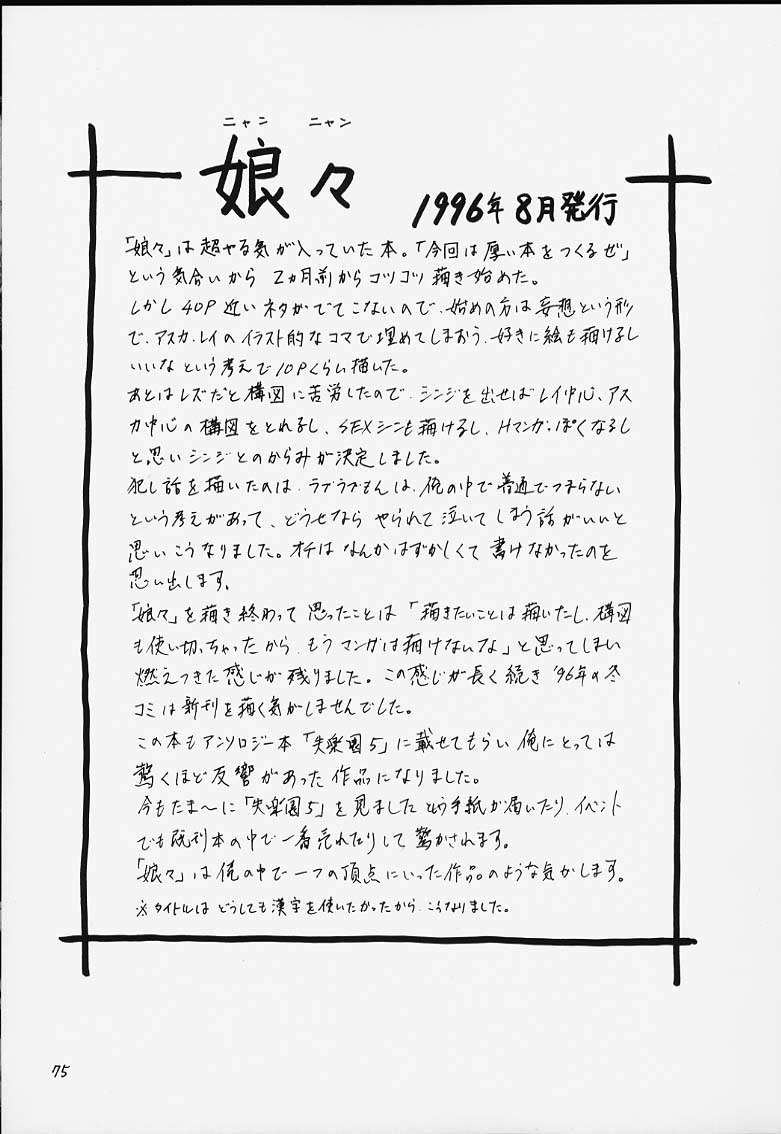 ニャン ニャン
娘々 1996年8月発行
「娘々」は超やる気が入っていた本。「今回は厚い本をつくるぜ」
という気合いから 2ヵ月前からコツコツ描き始めた。
しかし 40P近いネタがでてこないので、始めの方は妄想という形
で、アスカ、レイのイラスト的なコマで埋めてしまおう、好きに絵も描けるし
いいなという考えで10Pくらい描いた。
あとはレズだと構図に苦労したので、シンジを出せばレイ中心、アス
カ中心の構図をとれるし、SEXシーンも描けるし、Hマンガっぽくなるし
と思いシンジとのからみが決定しました。
犯し話を描いたのは、ラブラブもんは、俺の中で普通でつまらない
という考えがあって、どうせなら やられて泣いてしまう話がいいと
思いこうなりました。オチはなんかはずかしくて書けなかったのを
思い出します。
「娘々」を描き終わって思ったことは「描きたいことは描いたし、構図
も使い切っちゃったから、もうマンガは描けないな」と思ってしまい
燃えつきた感じが残りました。この感じが長く続き '96年の冬
コミは新刊を描く気がしませんでした。
この本もアンソロジー本「失楽園5」に載せてもらい 俺にとっては
驚くほど反響があった作品になりました。
今もたま〜に「失楽園5」を見ましたという手紙が届いたり、イベント
でも既刊本の中で一番売れたりして驚かされます。
「娘々」は俺の中で一つの頂点にいった作品のような気がします。
※タイトルは どうしても漢字を使いたかったから、こうなりました。
75